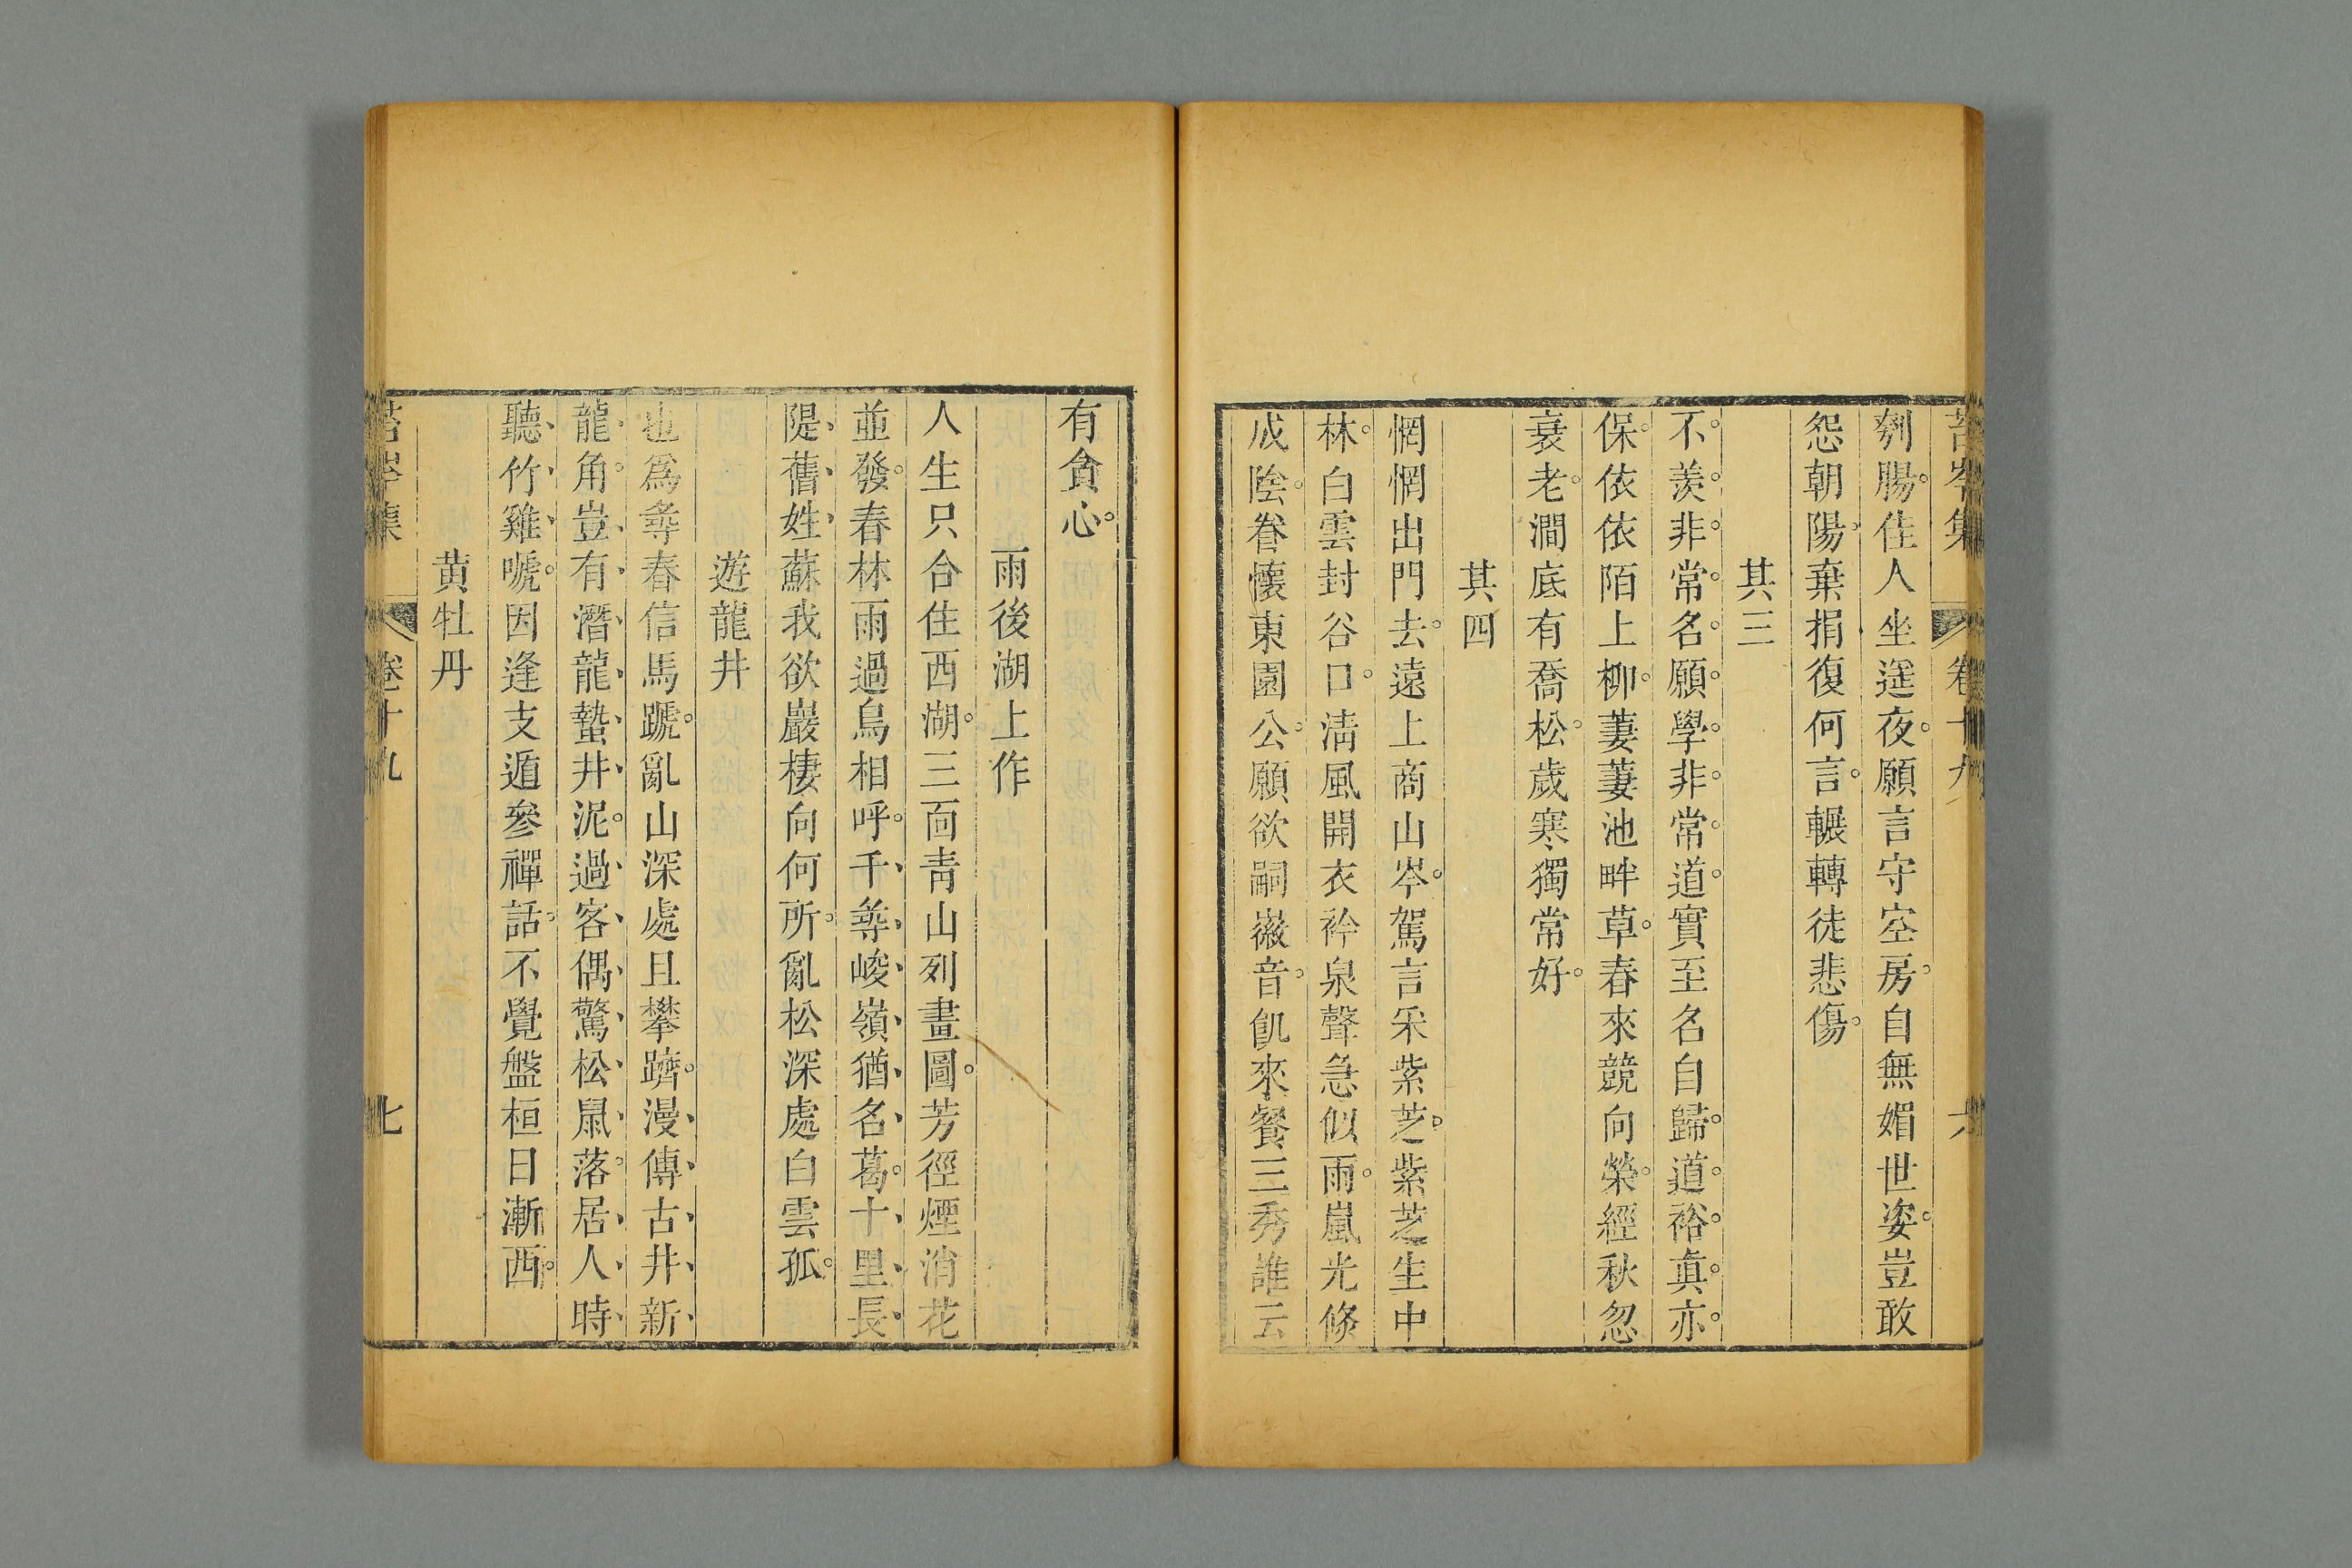 苔岑集 卷十九 六
刳腸。佳人坐遥夜。願言守空房。自無媚世姿。豈敢
怨朝陽。棄捐復何言。輾轉徒悲傷。
其三
不羨非常名。願學非常道。實至名自歸。道裕真亦
保。依依陌上柳。萋萋池畔草。春來競向榮。經秋忽
衰老。澗底有喬松。歲寒獨常好。
其四
惘惘出門去。遠上商山岑。駕言采紫芝。紫芝生中
林。白雲封谷口。清風開衣衿。泉聲急似雨。嵐光倐
成陰。眷懷東園公。願欲嗣嶶音。飢來餐三秀。誰云
有貪心。
雨後湖上作
人生只合住西湖。三面靑山列畫圖。芳徑煙消花
並發。春林雨過鳥相呼。千尋峻嶺猶名葛。十里長
隄舊姓蘇。我欲巖棲向何所。亂松深處白雲孤。
遊龍井
也爲尋春信馬蹏。亂山深處且攀躋。漫傳古井新
龍角。豈有潛龍蟄井泥。過客偶驚松鼠落。居人時
聽竹雞嗁。因逢支遁參禪話。不覺盤桓日漸西。
黄牡丹
苔岑集 卷十九 七